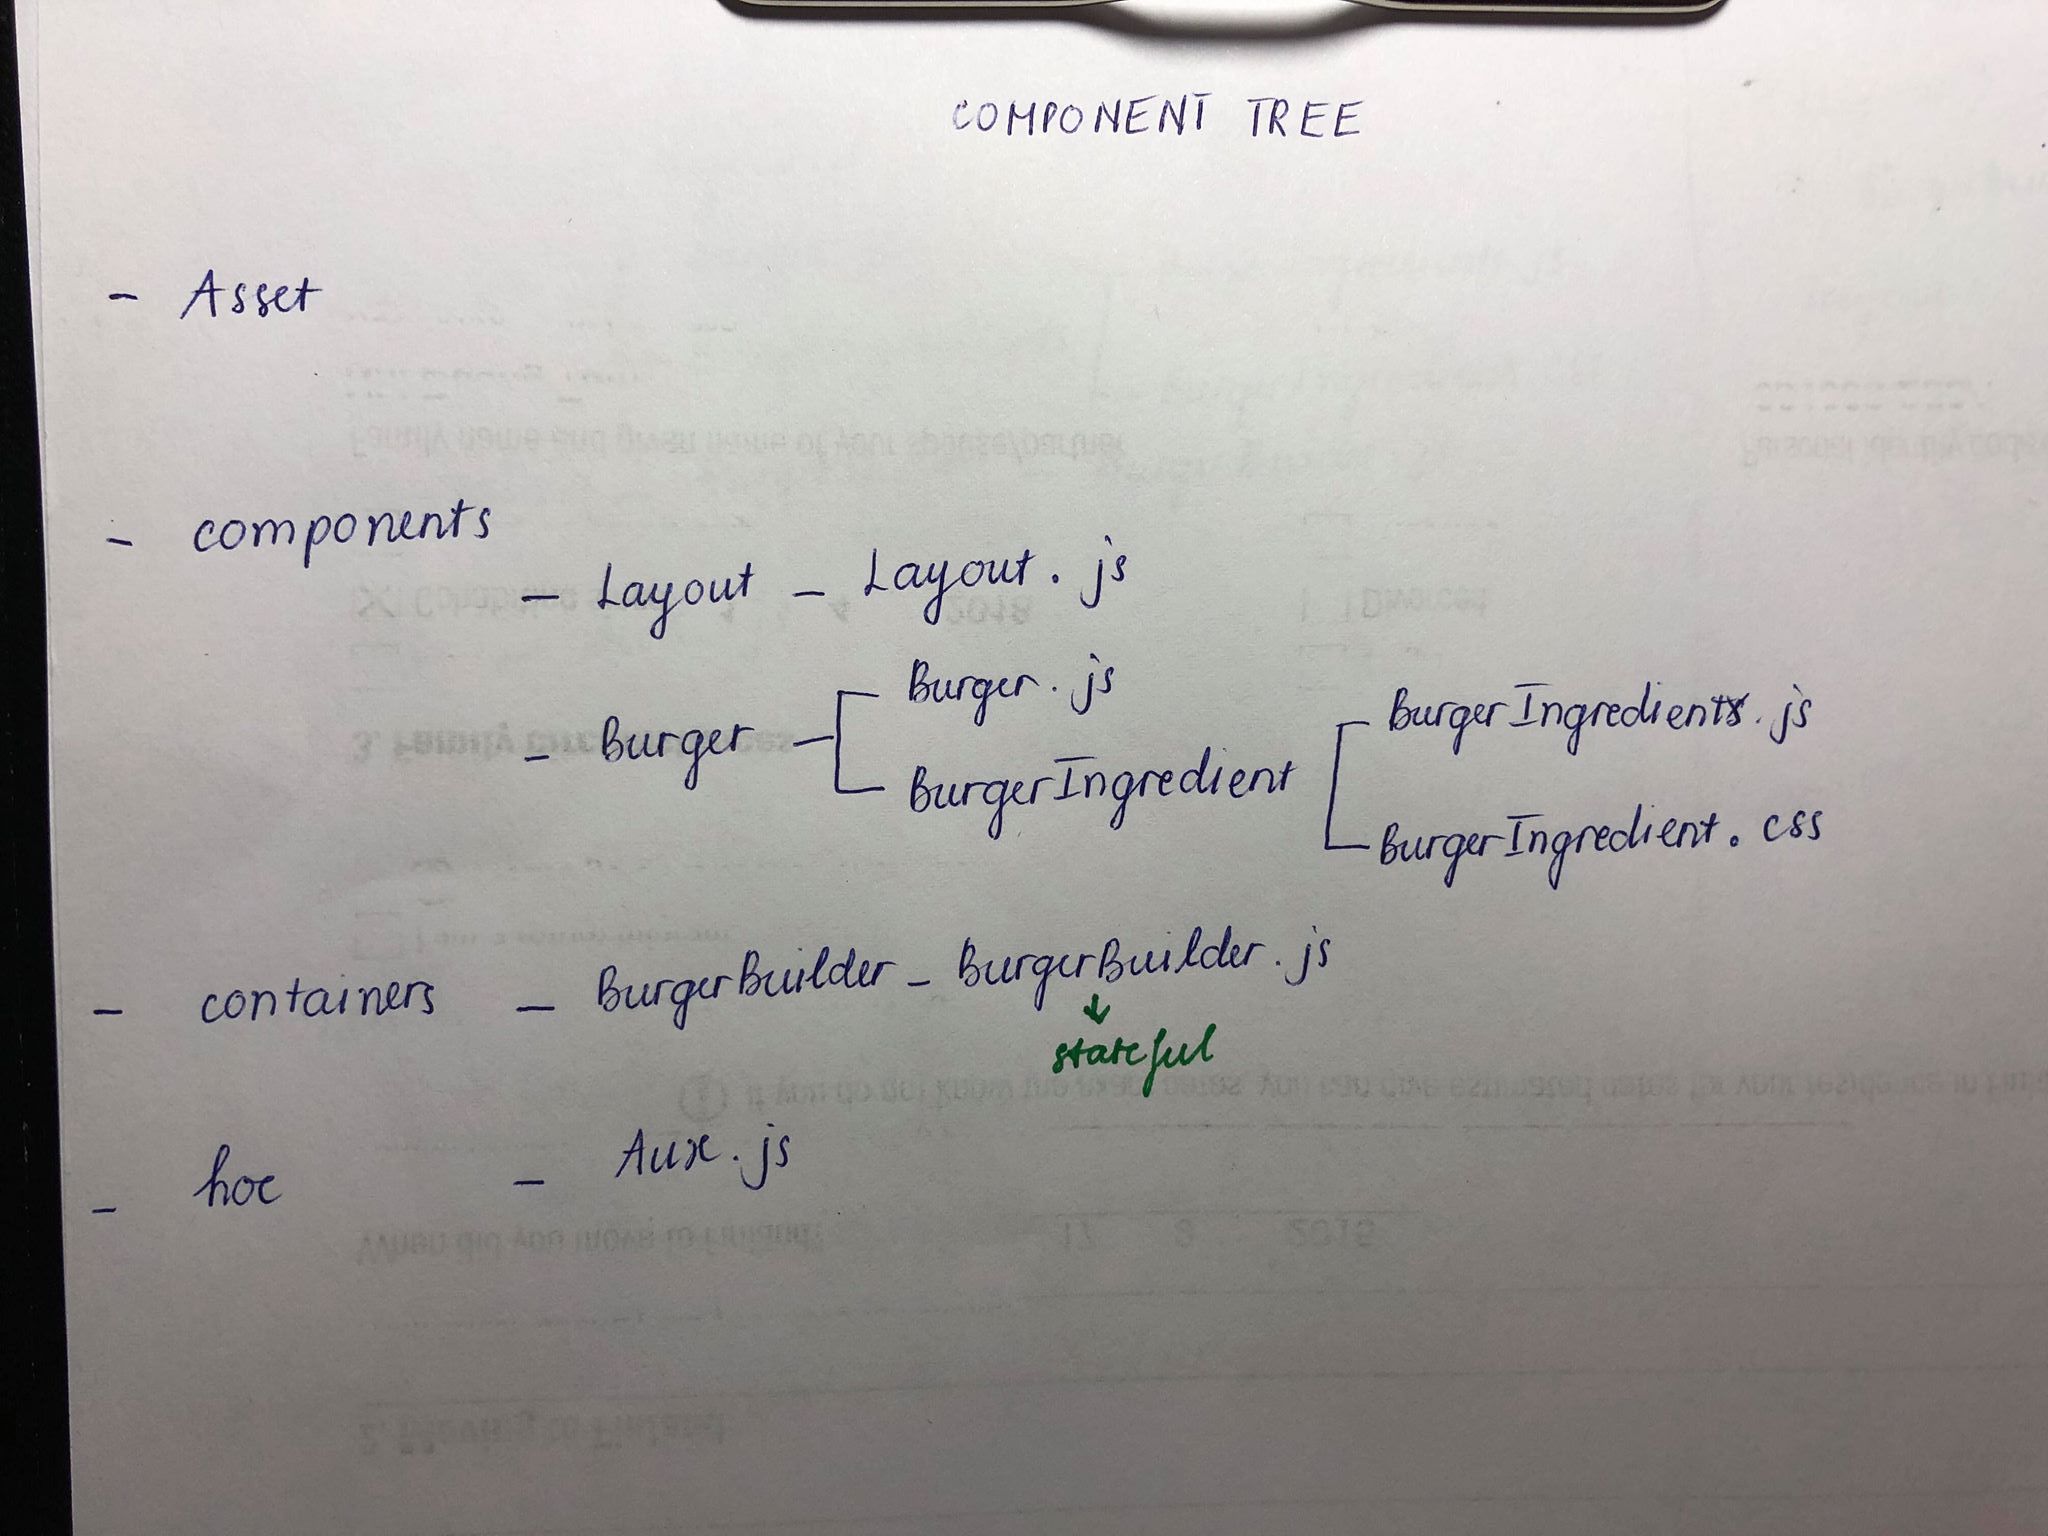 COMPONENT TREE
- Asset
- components
- Layout - Layout.js
- Burger - Burger.js
BurgerIngredient
BurgerIngredient.js
BurgerIngredient.css
- containers - BurgerBuilder - BurgerBuilder.js
↓
stateful
- hoc - Aux.js